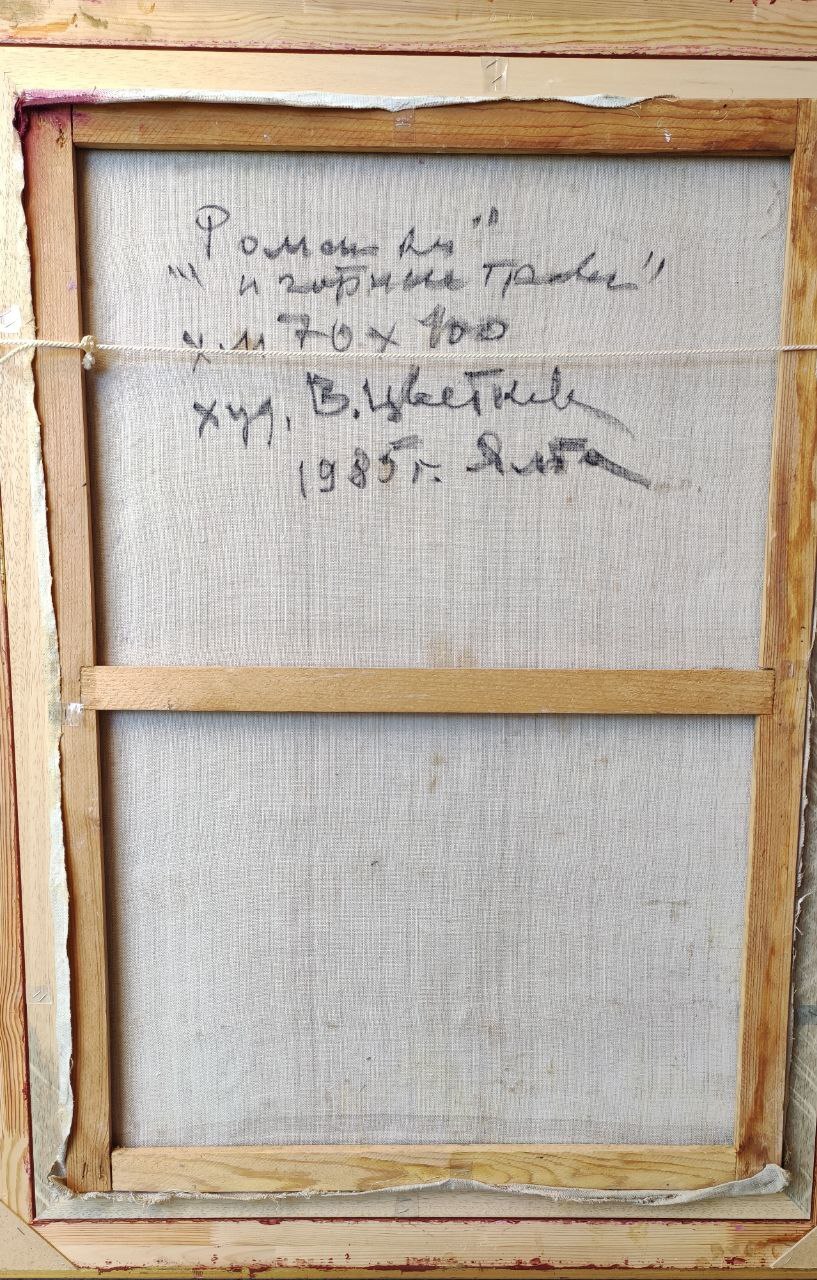 Ромашки"
"и горные травы"
х.м 70 х 100
худ. В. Цветков
1985г. Ялта